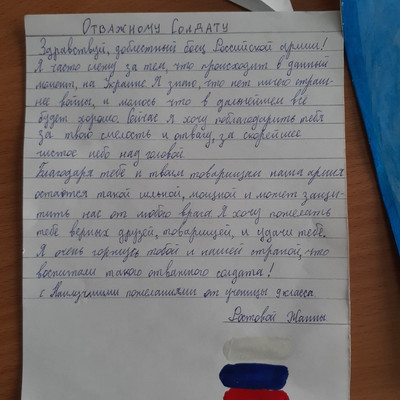 Отважному Солдату
Здравствуй, доблестный боец Российской армии!
Я часто слежу за тем, что происходит в данный
момент, на Украине Я знаю, что нет ничего страш-
нее войны, и молюсь что в дальнейшем всё
будет хорошо. Сейчас я хочу поблагодарить тебя
за твою смелость и отвагу, за скорейшее
чистое небо над головой
Благодаря тебе и твоим товарищам наша армия
остаётся такой сильной, мощной и может защи-
тить нас от любого врага Я хочу пожелать
тебе верных друзей, товарищей, и удачи тебе.
Я очень горжусь тобой и нашей страной, что
воспитали такого отважного солдата!
с Наилучшими пожеланиями от ученицы 9 класса
Ростовой Жанны